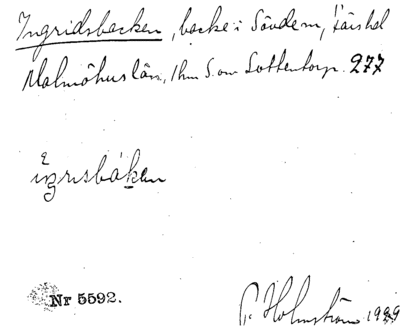 Ingridsbacken, backe i Sövdem, Färshd
Malmöhus län, 1 km S. om Sottentorp. 277
Nr 5592. P. Holmström 1929